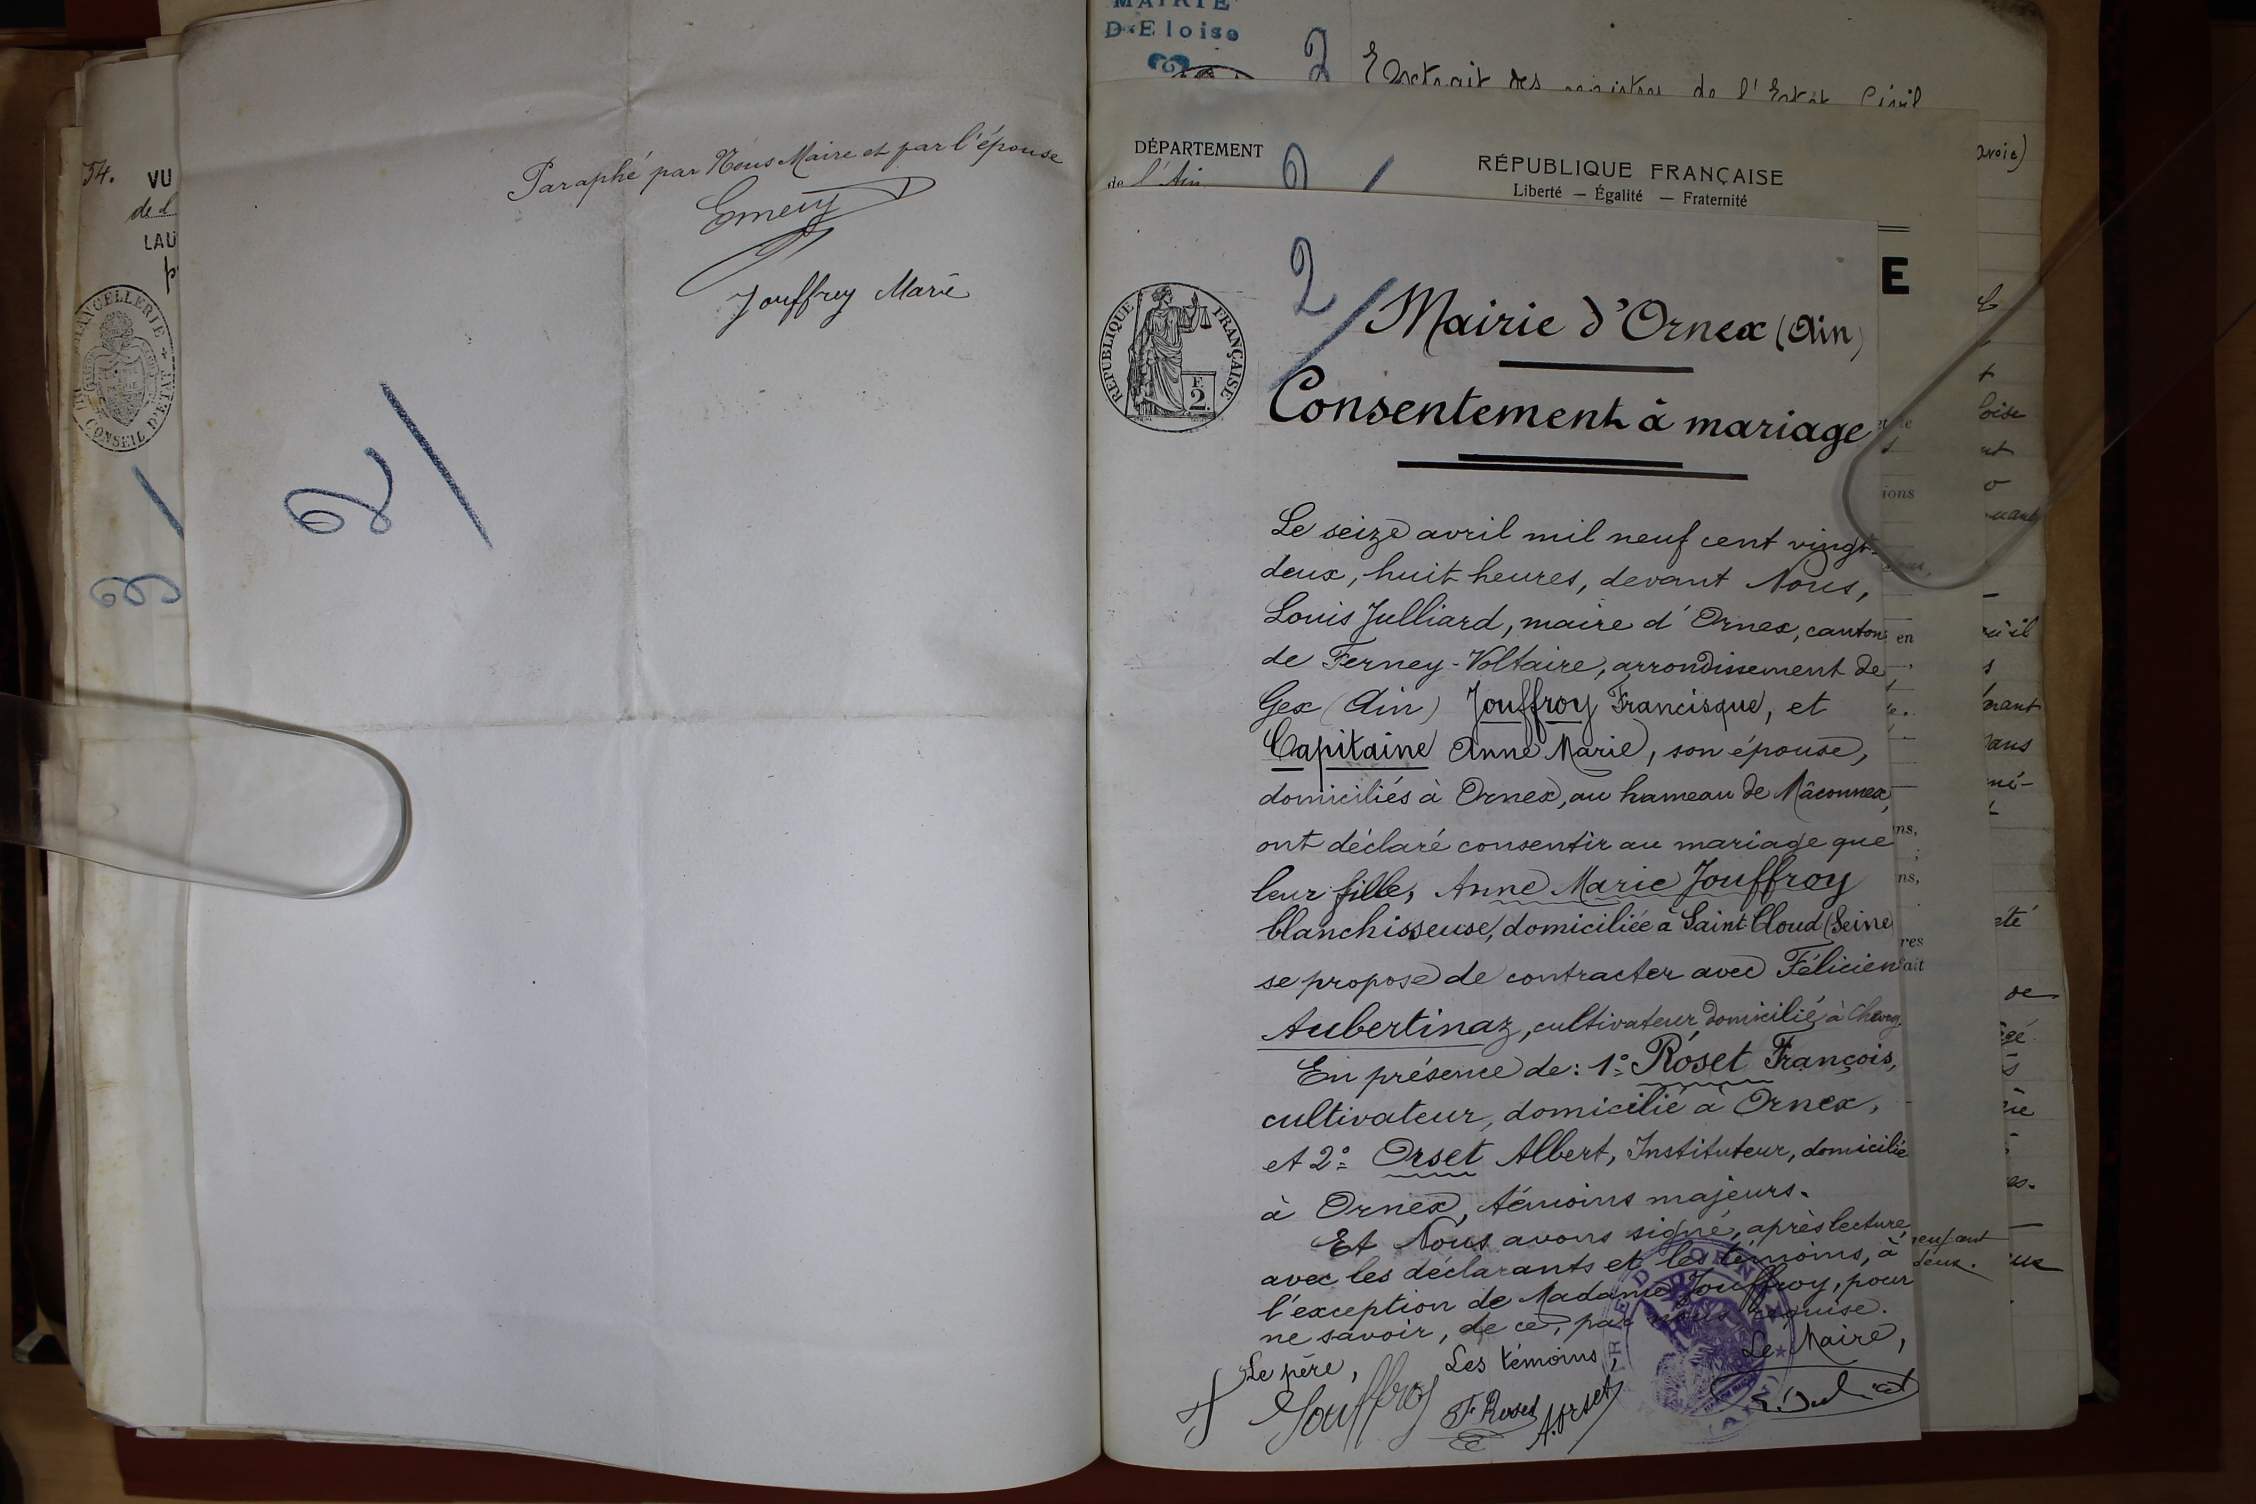 54.
VU
de l
LAU
CHANCELLERIE
CONSEIL D'ETAT
Paraphé par Nous Maire et par l'épouse
Emery
Jouffrey Marie
2/
MAIRIE
D'Eloise
2
Extrait des registres de l'Etat Civil
avoie)
DÉPARTEMENT
de l'Ain
2/
RÉPUBLIQUE FRANÇAISE
Liberté — Égalité — Fraternité
E
2/
RÉPUBLIQUE FRANÇAISE
F.
2.
Mairie d'Ornex (Ain)
Consentement à mariage
Le seize avril mil neuf cent vingt-
deux, huit heures, devant Nous,
Louis Julliard, maire d'Ornex, canton
de Ferney-Voltaire, arrondissement de
Gex (Ain) Jouffroy Francisque, et
Capitaine Anne Marie, son épouse,
domiciliés à Ornex, au hameau de Mâconnex,
ont déclaré consentir au mariage que
leur fille, Anne Marie Jouffroy
blanchisseuse, domiciliée à Saint-Cloud (Seine)
se propose de contracter avec Félicien
Aubertinaz, cultivateur, domicilié à
En présence de: 1º Roset François,
cultivateur, domicilié à Ornex,
et 2º Orset Albert, Instituteur, domicilié
à Ornex, témoins majeurs.
Et Nous avons signé, après lecture,
avec les déclarants et les témoins, à
l'exception de Madame Jouffroy, pour
ne savoir, de ce, par nous requise.
Le père,
Les témoins,
Le Maire,
Jouffroy
F. Roset
A. Orset